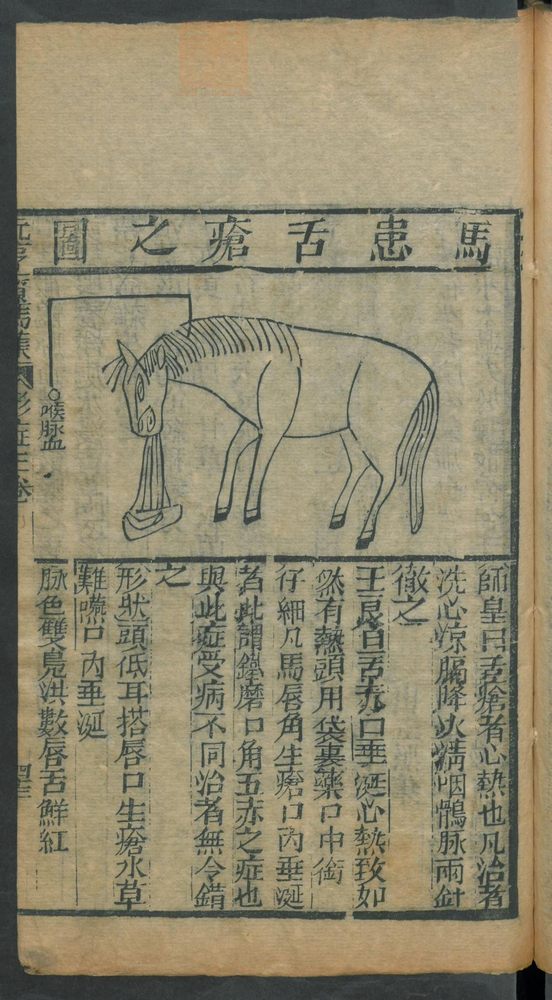 馬患舌瘡之圖
喉脉血
師皇曰舌瘡者心熱也凡治者
洗心凉膈降火清咽鶻脉兩針
徹之
王良曰舌赤口垂涎心熱致如
然有熱頭用袋裹藥口中銜
仔細凡馬唇角生瘡口內垂涎
者此謂鏵磨口角五赤之症也
與此症受病不同治者無令錯
之
形狀頭低耳搭唇口生瘡水草
難嚥口內垂涎
脉色雙鳧洪數唇舌鮮紅